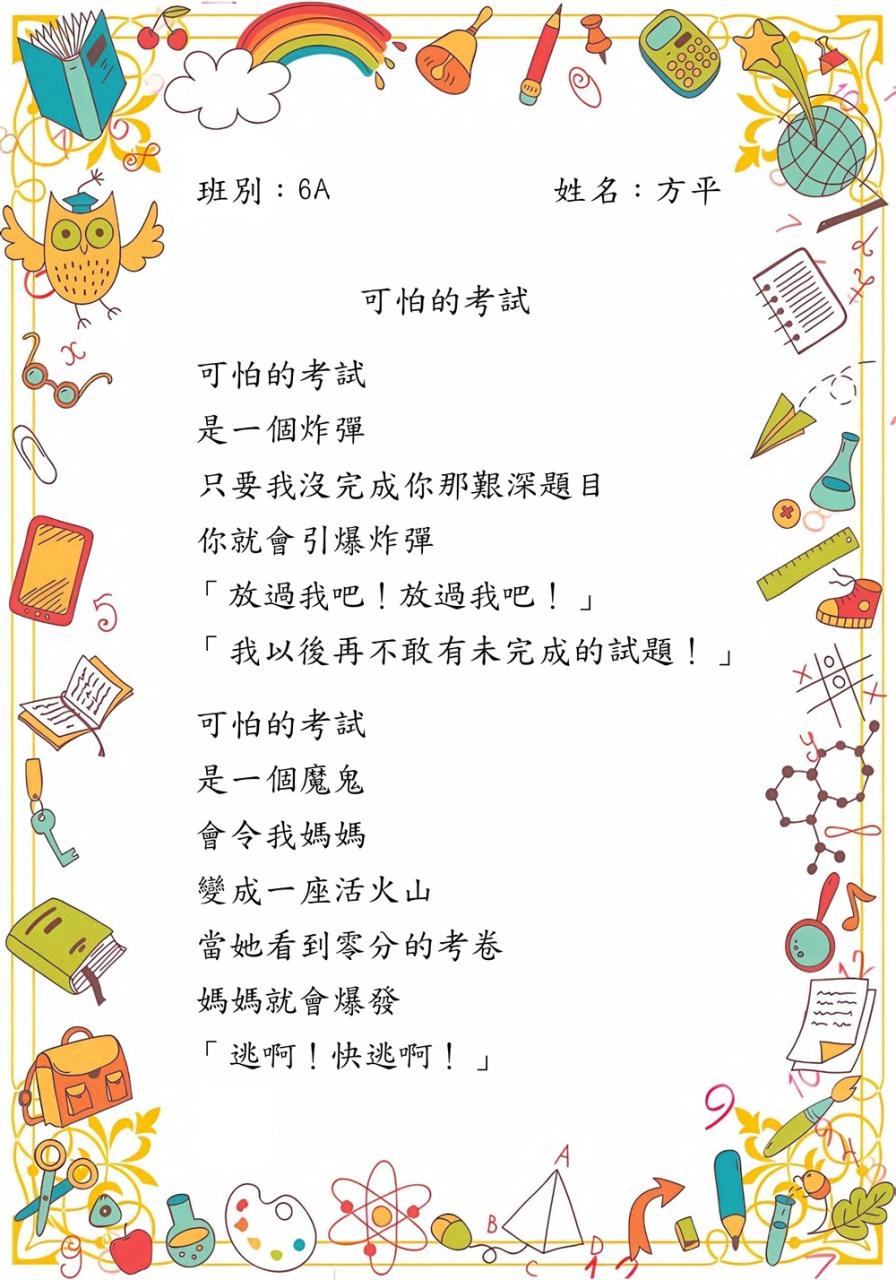 班別：6A 姓名：方平
可怕的考試
可怕的考試
是一個炸彈
只要我沒完成你那艱深題目
你就會引爆炸彈
「放過我吧！放過我吧！」
「我以後再不敢有未完成的試題！」
可怕的考試
是一個魔鬼
會令我媽媽
變成一座活火山
當她看到零分的考卷
媽媽就會爆發
「逃啊！快逃啊！」